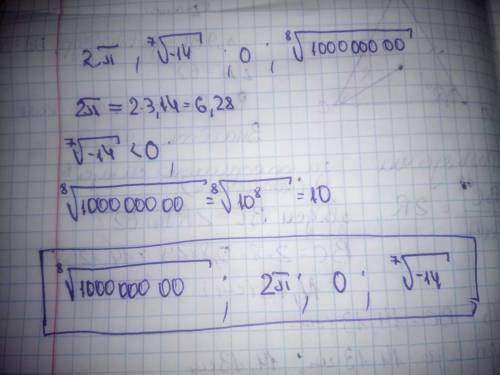 2π ; ⁷√-14 ; 0 ; ⁸√1000000 00
2π = 2·3,14 = 6,28
⁷√-14 < 0 ;
⁸√1000000 00 = ⁸√10⁸ = 10
⁸√1000000 00 ; 2π ; 0 ; ⁷√-14